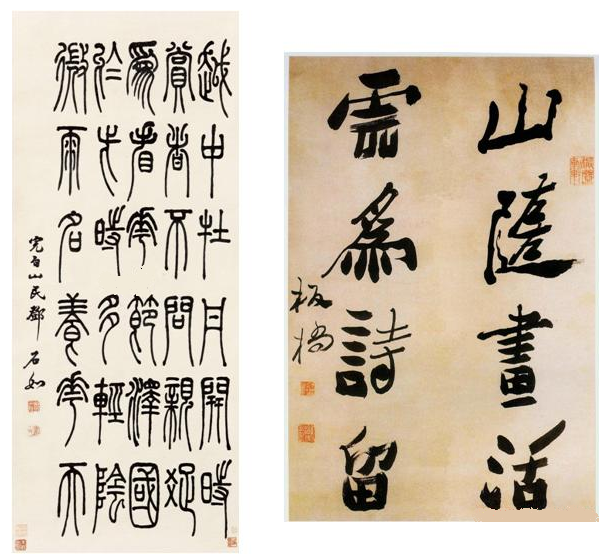 越中牡丹開時
賞者不問親疏
爲看花節澤國
於此時多輕陰
微雨名養花天
完白山民鄧石如
山隨畫活
雲爲詩留
板橋